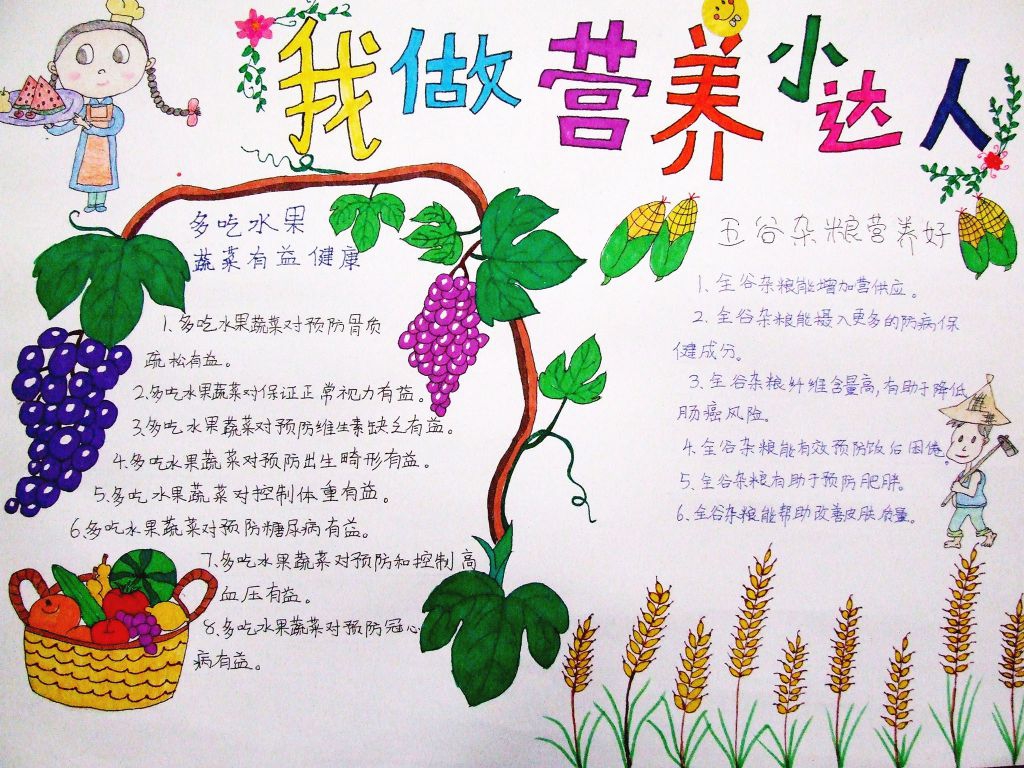 我做营养小达人
多吃水果
蔬菜有益健康
1、多吃水果蔬菜对预防骨质
疏松有益。
2.多吃水果蔬菜对保证正常视力有益。
3.多吃水果蔬菜对预防维生素缺乏有益。
4.多吃水果蔬菜对预防出生畸形有益。
5.多吃水果蔬菜对控制体重有益。
6.多吃水果蔬菜对预防糖尿病有益。
7.多吃水果蔬菜对预防和控制高
血压有益。
8.多吃水果蔬菜对预防冠心
病有益。
五谷杂粮营养好
1、全谷杂粮能增加营供应。
2.全谷杂粮能摄入更多的防病保
健成分。
3.全谷杂粮纤维含量高,有助于降低
肠癌风险。
4.全谷杂粮能有效预防饭后困倦。
5.全谷杂粮有助于预防肥胖。
6.全谷杂粮能帮助改善皮肤质量。